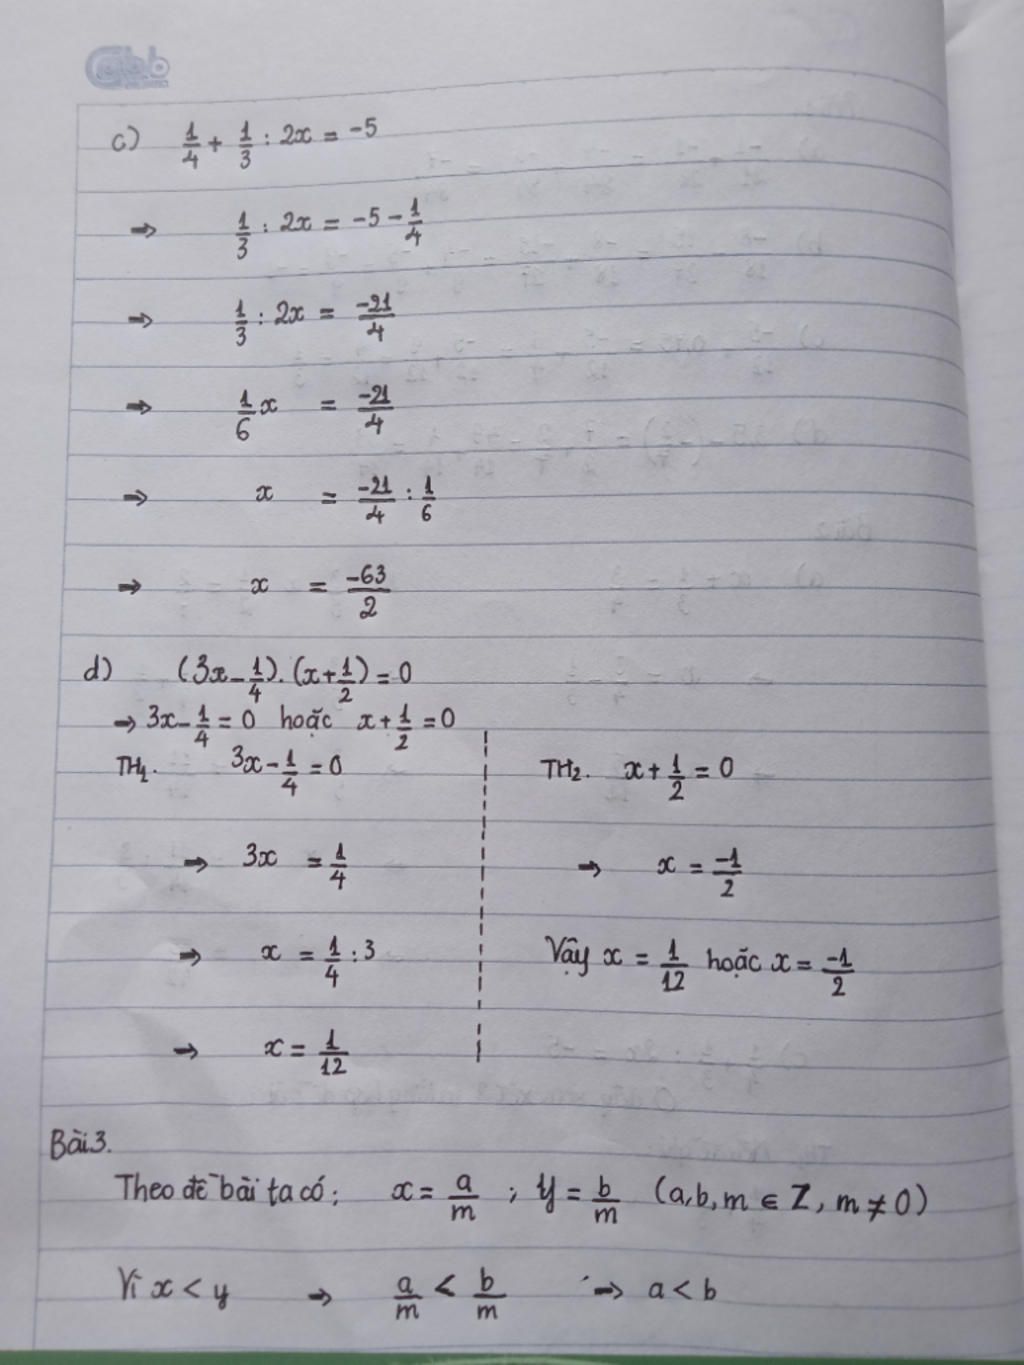 c) 1/4 + 1/3 : 2x = -5
⇒ 1/3 : 2x = -5 - 1/4
⇒ 1/3 : 2x = -21/4
⇒ 1/6 x = -21/4
⇒ x = -21/4 : 1/6
⇒ x = -63/2
d) (3x - 1/4) . (x + 1/2) = 0
⇒ 3x - 1/4 = 0 hoặc x + 1/2 = 0
TH1. 3x - 1/4 = 0
⇒ 3x = 1/4
⇒ x = 1/4 : 3
⇒ x = 1/12
TH2. x + 1/2 = 0
⇒ x = -1/2
Vậy x = 1/12 hoặc x = -1/2
Bài 3.
Theo đề bài ta có: x = a/m ; y = b/m (a, b, m ∈ Z, m ≠ 0)
Vì x < y ⇒ a/m < b/m ⇒ a < b